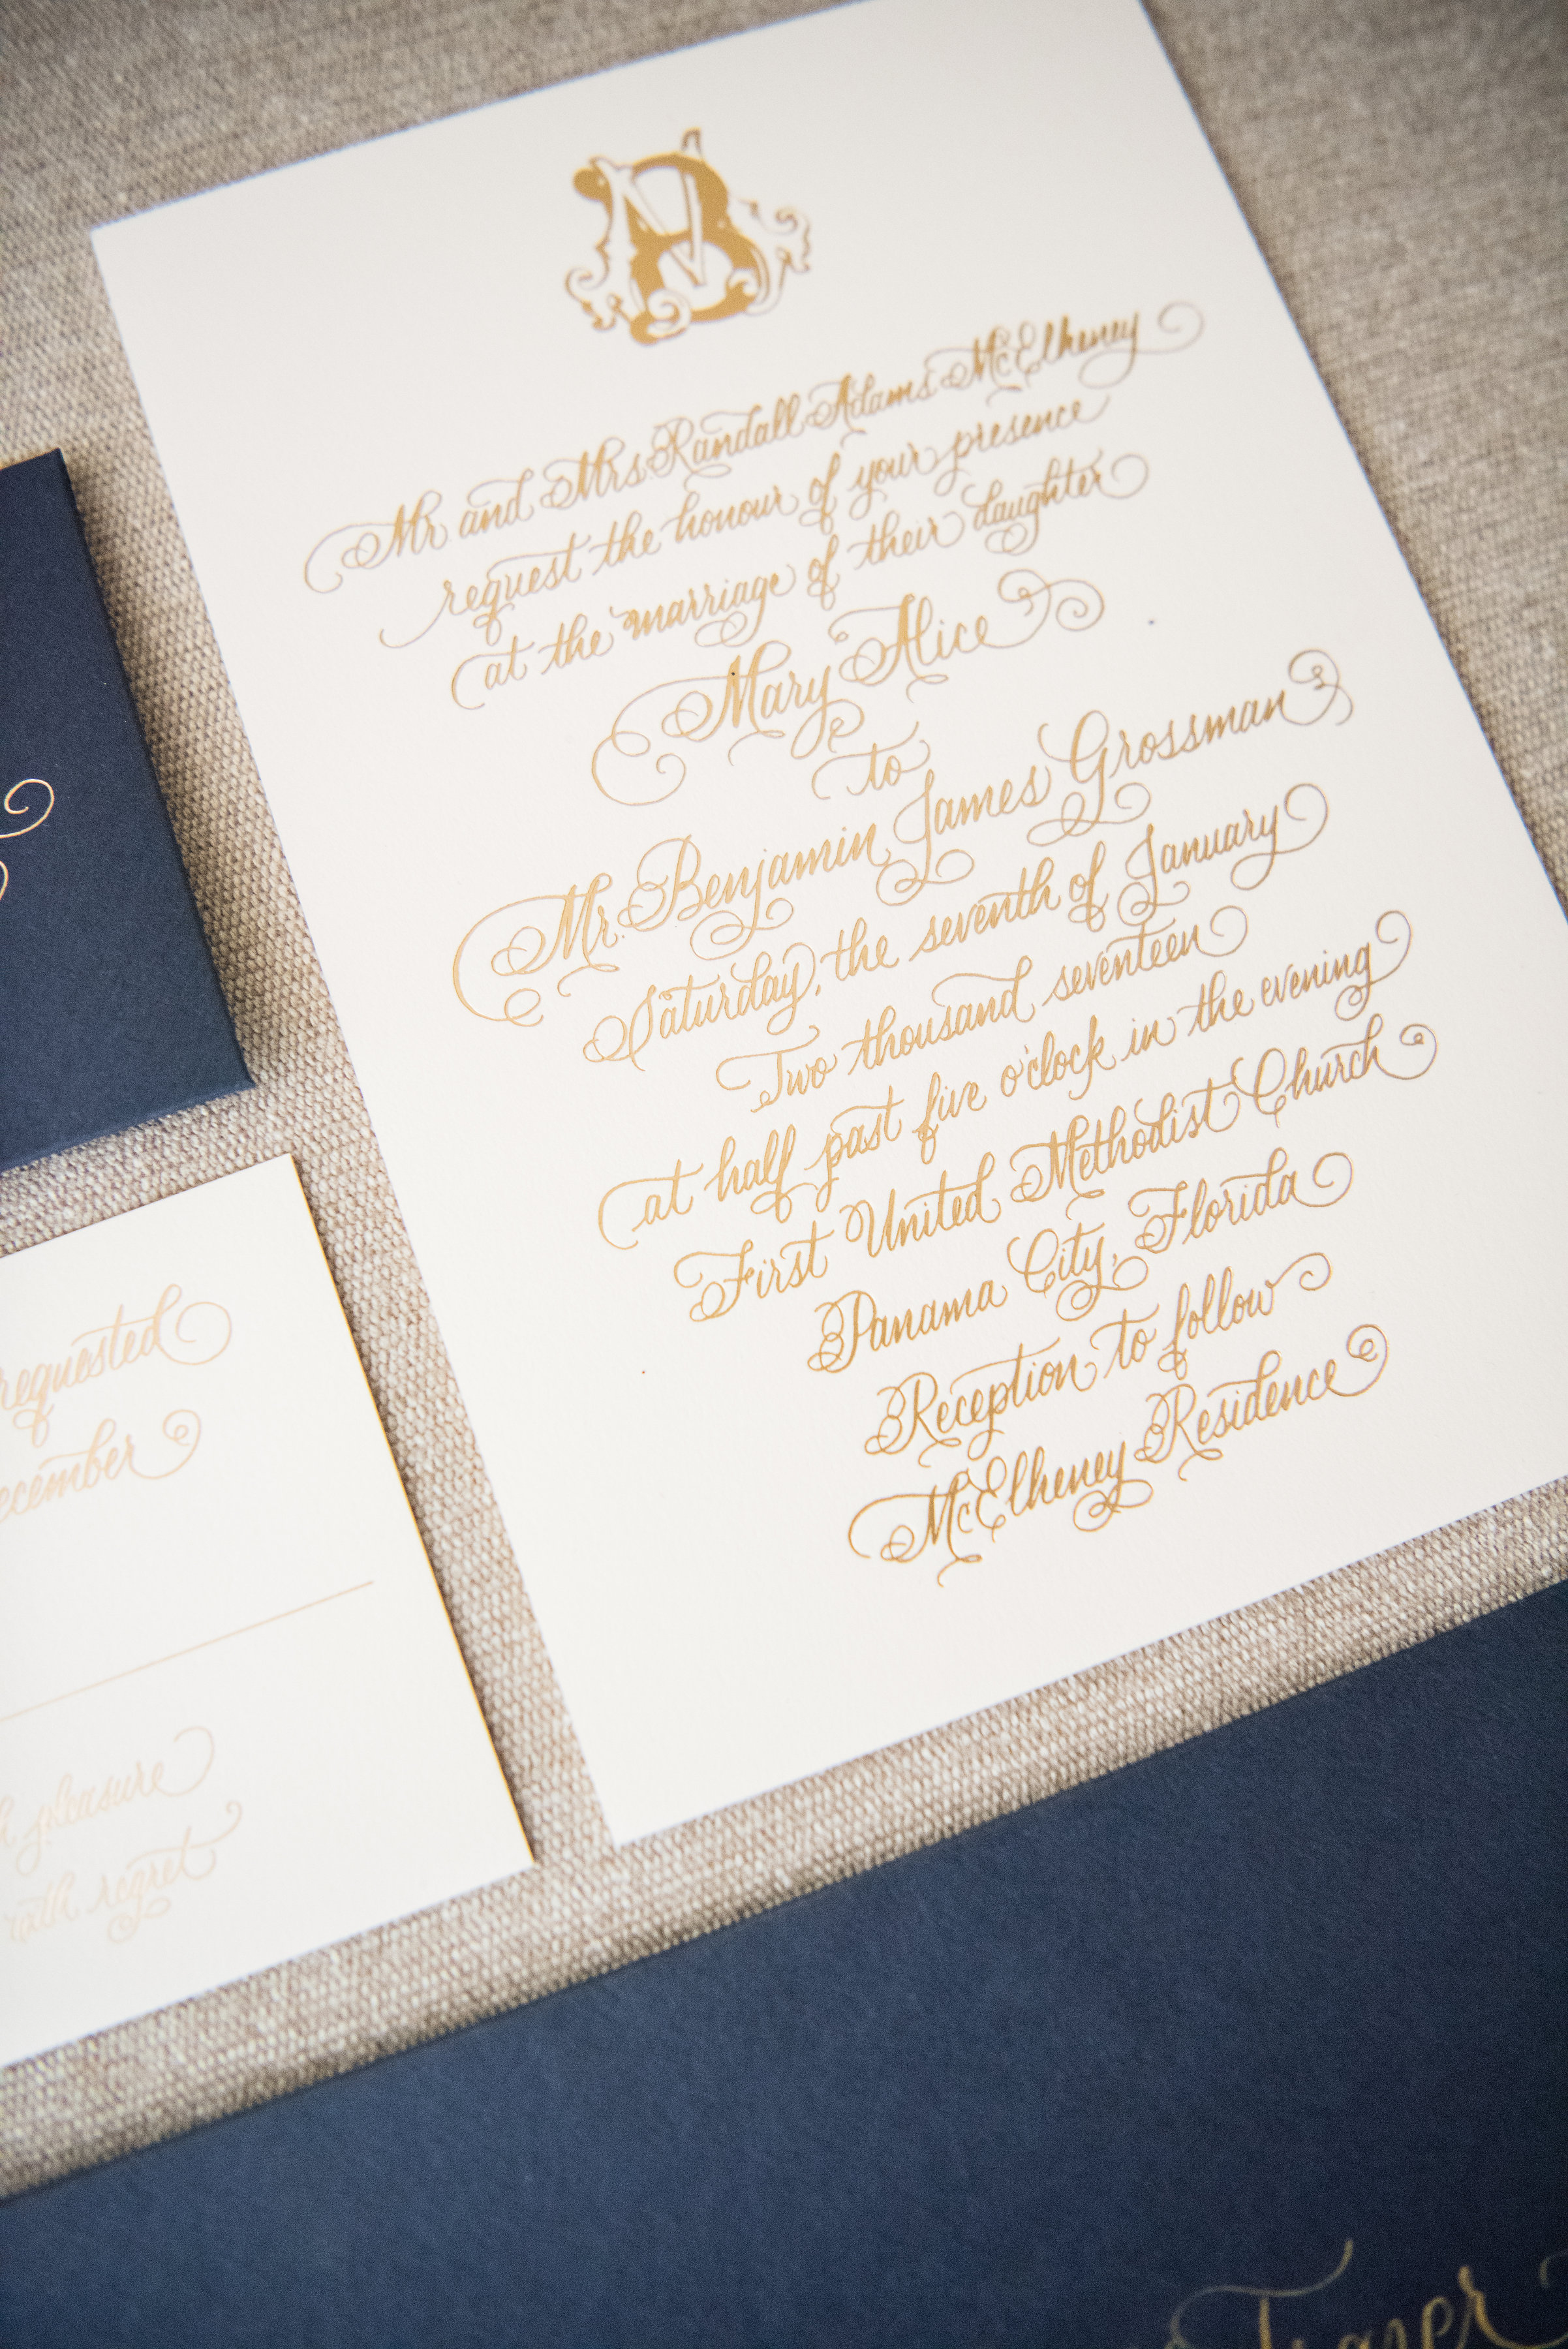 Mr and Mrs. Randall Adams McElheney
request the honour of your presence
at the marriage of their daughter
Mary Alice
to
Mr. Benjamin James Grossman
Saturday, the seventh of January
Two thousand seventeen
at half past five o'clock in the evening
First United Methodist Church
Panama City, Florida
Reception to follow
McElheney Residence
requested
pleasure
regret